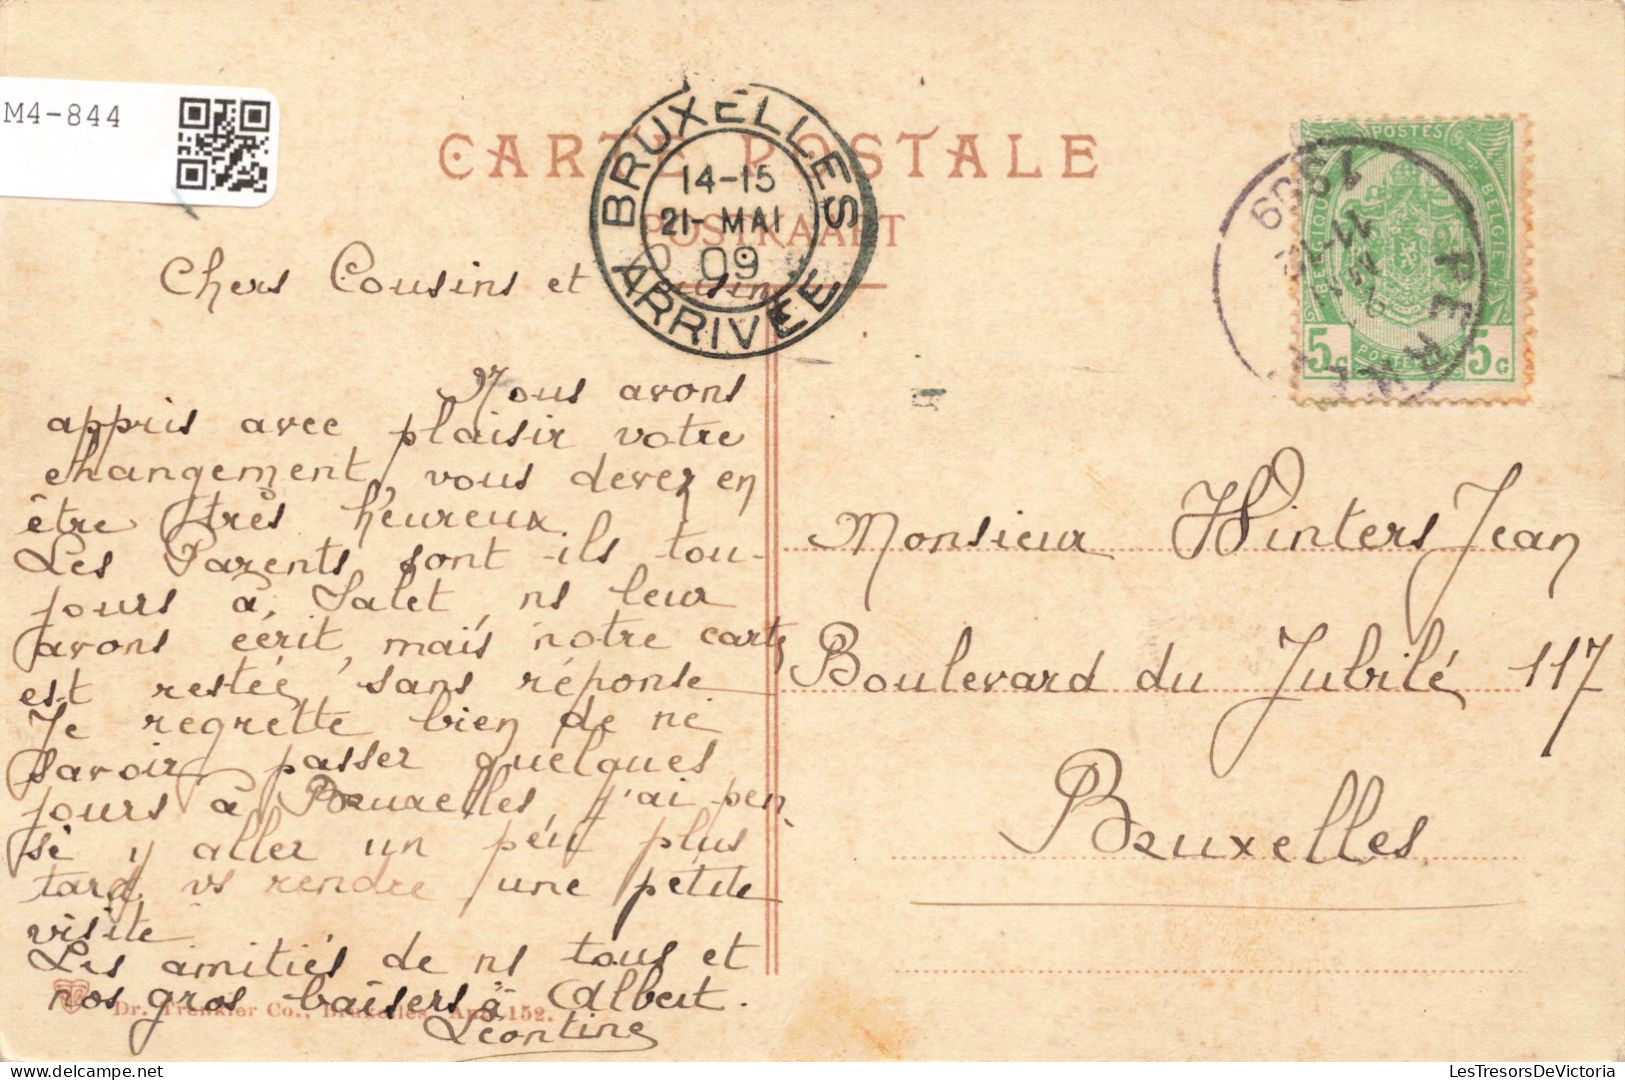 M4-844
CARTE POSTALE
POSTKAART
BRUXELLES
14-15
21-MAI
09
ARRIVÉE
POSTES
BELGIQUE
BELGIË
5c 5c
1909
11-12
PERK
Chers Cousins et Cousine
Nous avons
appris avec plaisir votre
changement, vous devez en
être très heureux
Les Parents sont-ils tou-
jours à Salet, ns leur
avons écrit, mais notre carte
est restée sans réponse
Je regrette bien de ne
savoir passer quelques
jours à Bruxelles, j'ai pen
sé y aller un peu plus
tard vs rendre une petite
visite
Les amitiés de ns tous et
nos gros baisers à Albert.
Léontine
Monsieur Winters Jean
Boulevard du Jubilé 117
Bruxelles
Dr. Trenkler Co., Bruxelles. 152.
LesTresorsDeVictoria